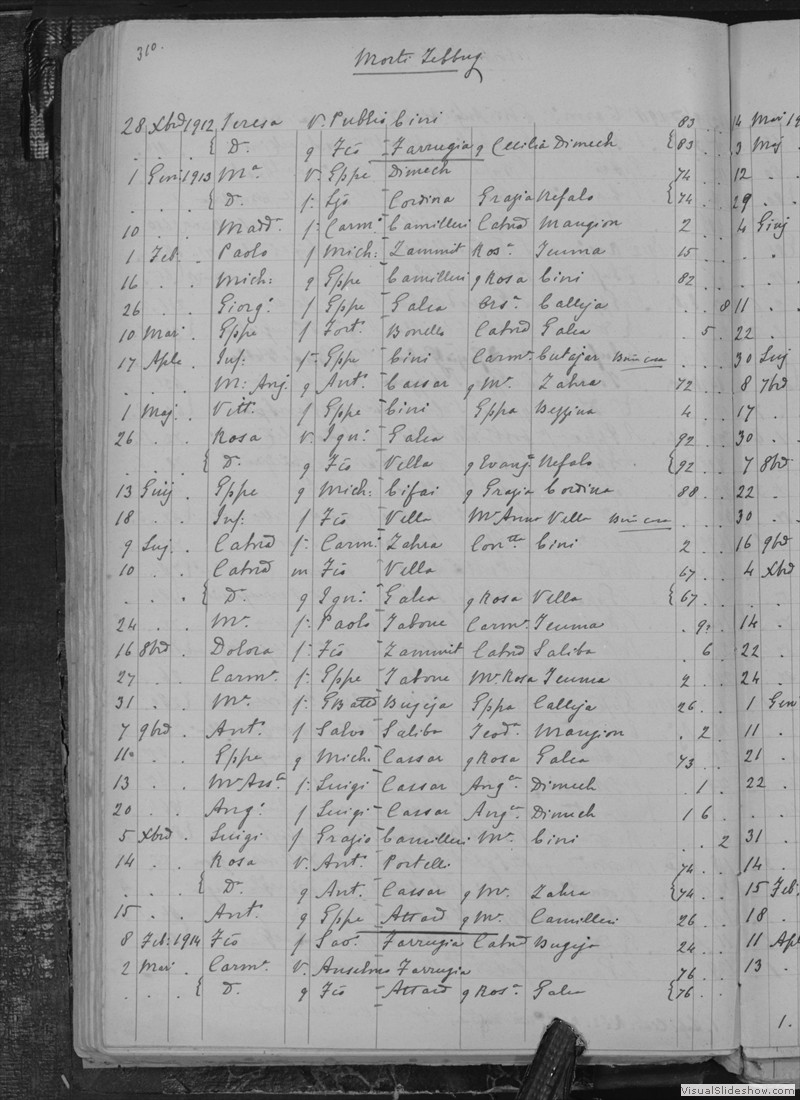 310.
Morti Zebbug
28 Xbre 1912 Teresa V. Publio Cini 83 . . 4 Mai
. . . { D. q Fco Farrugia q Cecilia Dimech {83 . . 3 Maj
1 Gen 1913 Ma V. Eppe Dimech 74 . . 12 . .
. . . { D. f: Ljo Cordina Grazia Refalo {74 . . 29 . .
10 . . Madd. f: Carmo Camilleri Catna Mangion 2 . . 4 Giuj
1 Feb. . Paolo f Mich: Zammit Rosa Tewma 15 . .
16 . . Mich: q Eppe Camilleri q Rosa Cini 82 . .
26 . . Giorgo f Eppe Galea Orsa Calleja . . 8 11 . .
10 Mar . Eppe f Forto Bonello Catna Galea . 5 . 22 . .
17 Aple . Inf: f. Eppe Cini Carma Cutajar 30 Luj
. . . M: Anj. q Anto Cassar q Ma Zahra 72 . . 8 7bre
1 Maj . Vitt. f Eppe Cini Eppa Bezzina 4 . . 17 .
26 . . Rosa V. Igno Galea 92 . . 30 . .
. . . { D. q Fco Vella q Evanga Refalo {92 . . 7 8bre
13 Giuj . Eppe q Mich: Cifai q Grazia Cordina 88 . . 22 . .
18 . . Inf: f Fco Vella Ma Anna Vella 30 . .
9 Luj . Catna f: Carmo Zahra Contta Cini 2 . . 16 9bre
10 . . Catna m Fco Vella 67 . . 4 Xbre
. . . { D. q Igno Galea q Rosa Vella {67 . .
24 . . Ma f: Paolo Tabone Carma Tewma . 9 . 14 . .
16 8bre . Dolora f: Fco Zammit Catna Saliba . 6 . 22 . .
27 . . Carma f: Eppe Tabone Ma Rosa Tewma 2 . . 24 . .
31 . . Ma f: GBatta Bugeja Eppa Calleja 26 . . 1 Gen
7 9bre . Anto f Salvo Saliba Teoda Mangion . 2 . 11 . .
11 . . Eppe q Mich: Cassar q Rosa Galea 73 . . 21 . .
13 . . Ma Assa f: Luigi Cassar Anga Dimech . 1 . 22 . .
20 . . Ango f Luigi Cassar Anga Dimech 1 6 .
5 Xbre . Luigi f Grazio Camilleri Ma Cini . . 2 31 .
14 . . Rosa V. Anto Portelli 74 . . 14 .
. . . { D. q Anto Cassar q Ma Zahra {74 . . 15 Feb.
15 . . Anto q Eppe Attard q Ma Camilleri 26 . . 18 . .
8 Feb: 1914 Fco f Savo Farrugia Catna Bugeja 24 . . 11 Apl
2 Mar . Carma V. Anselmo Farrugia 76 . . 13 . .
. . . { D. q Fco Attard q Rosa Galea {76 . .
1.
VisualSlideshow.com